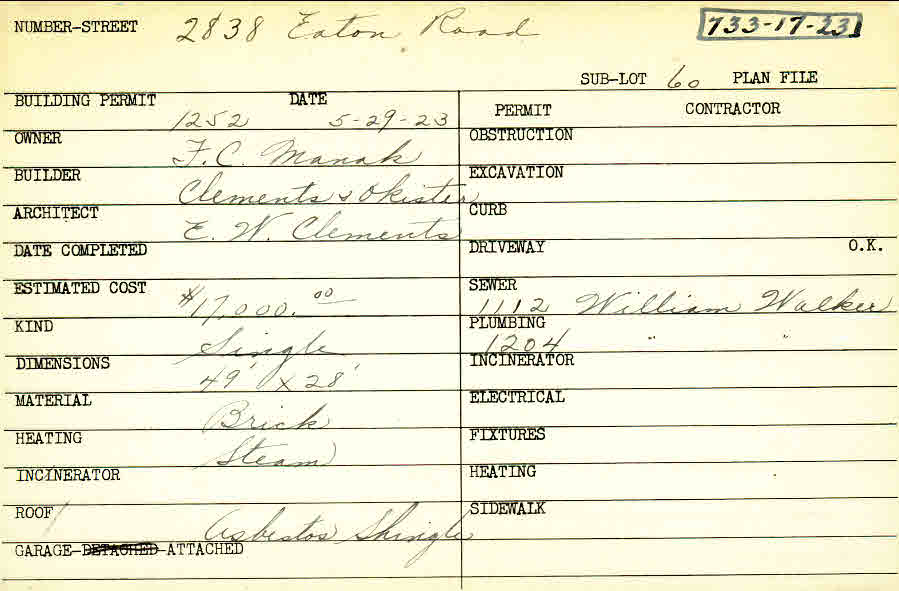 NUMBER-STREET 2838 Eaton Road 733-17-23
SUB-LOT 60 PLAN FILE
BUILDING PERMIT 1252 DATE 5-29-23
OWNER F. C. Manak
BUILDER Clements & Okister
ARCHITECT E. W. Clements
DATE COMPLETED
ESTIMATED COST $17,000.00
KIND Single
DIMENSIONS 49' x 28'
MATERIAL Brick
HEATING Steam
INCINERATOR
ROOF Asbestos Shingle
GARAGE-DETACHED-ATTACHED
PERMIT CONTRACTOR
OBSTRUCTION
EXCAVATION
CURB
DRIVEWAY O.K.
SEWER 1112 William Walker
PLUMBING 1204 " "
INCINERATOR
ELECTRICAL
FIXTURES
HEATING
SIDEWALK